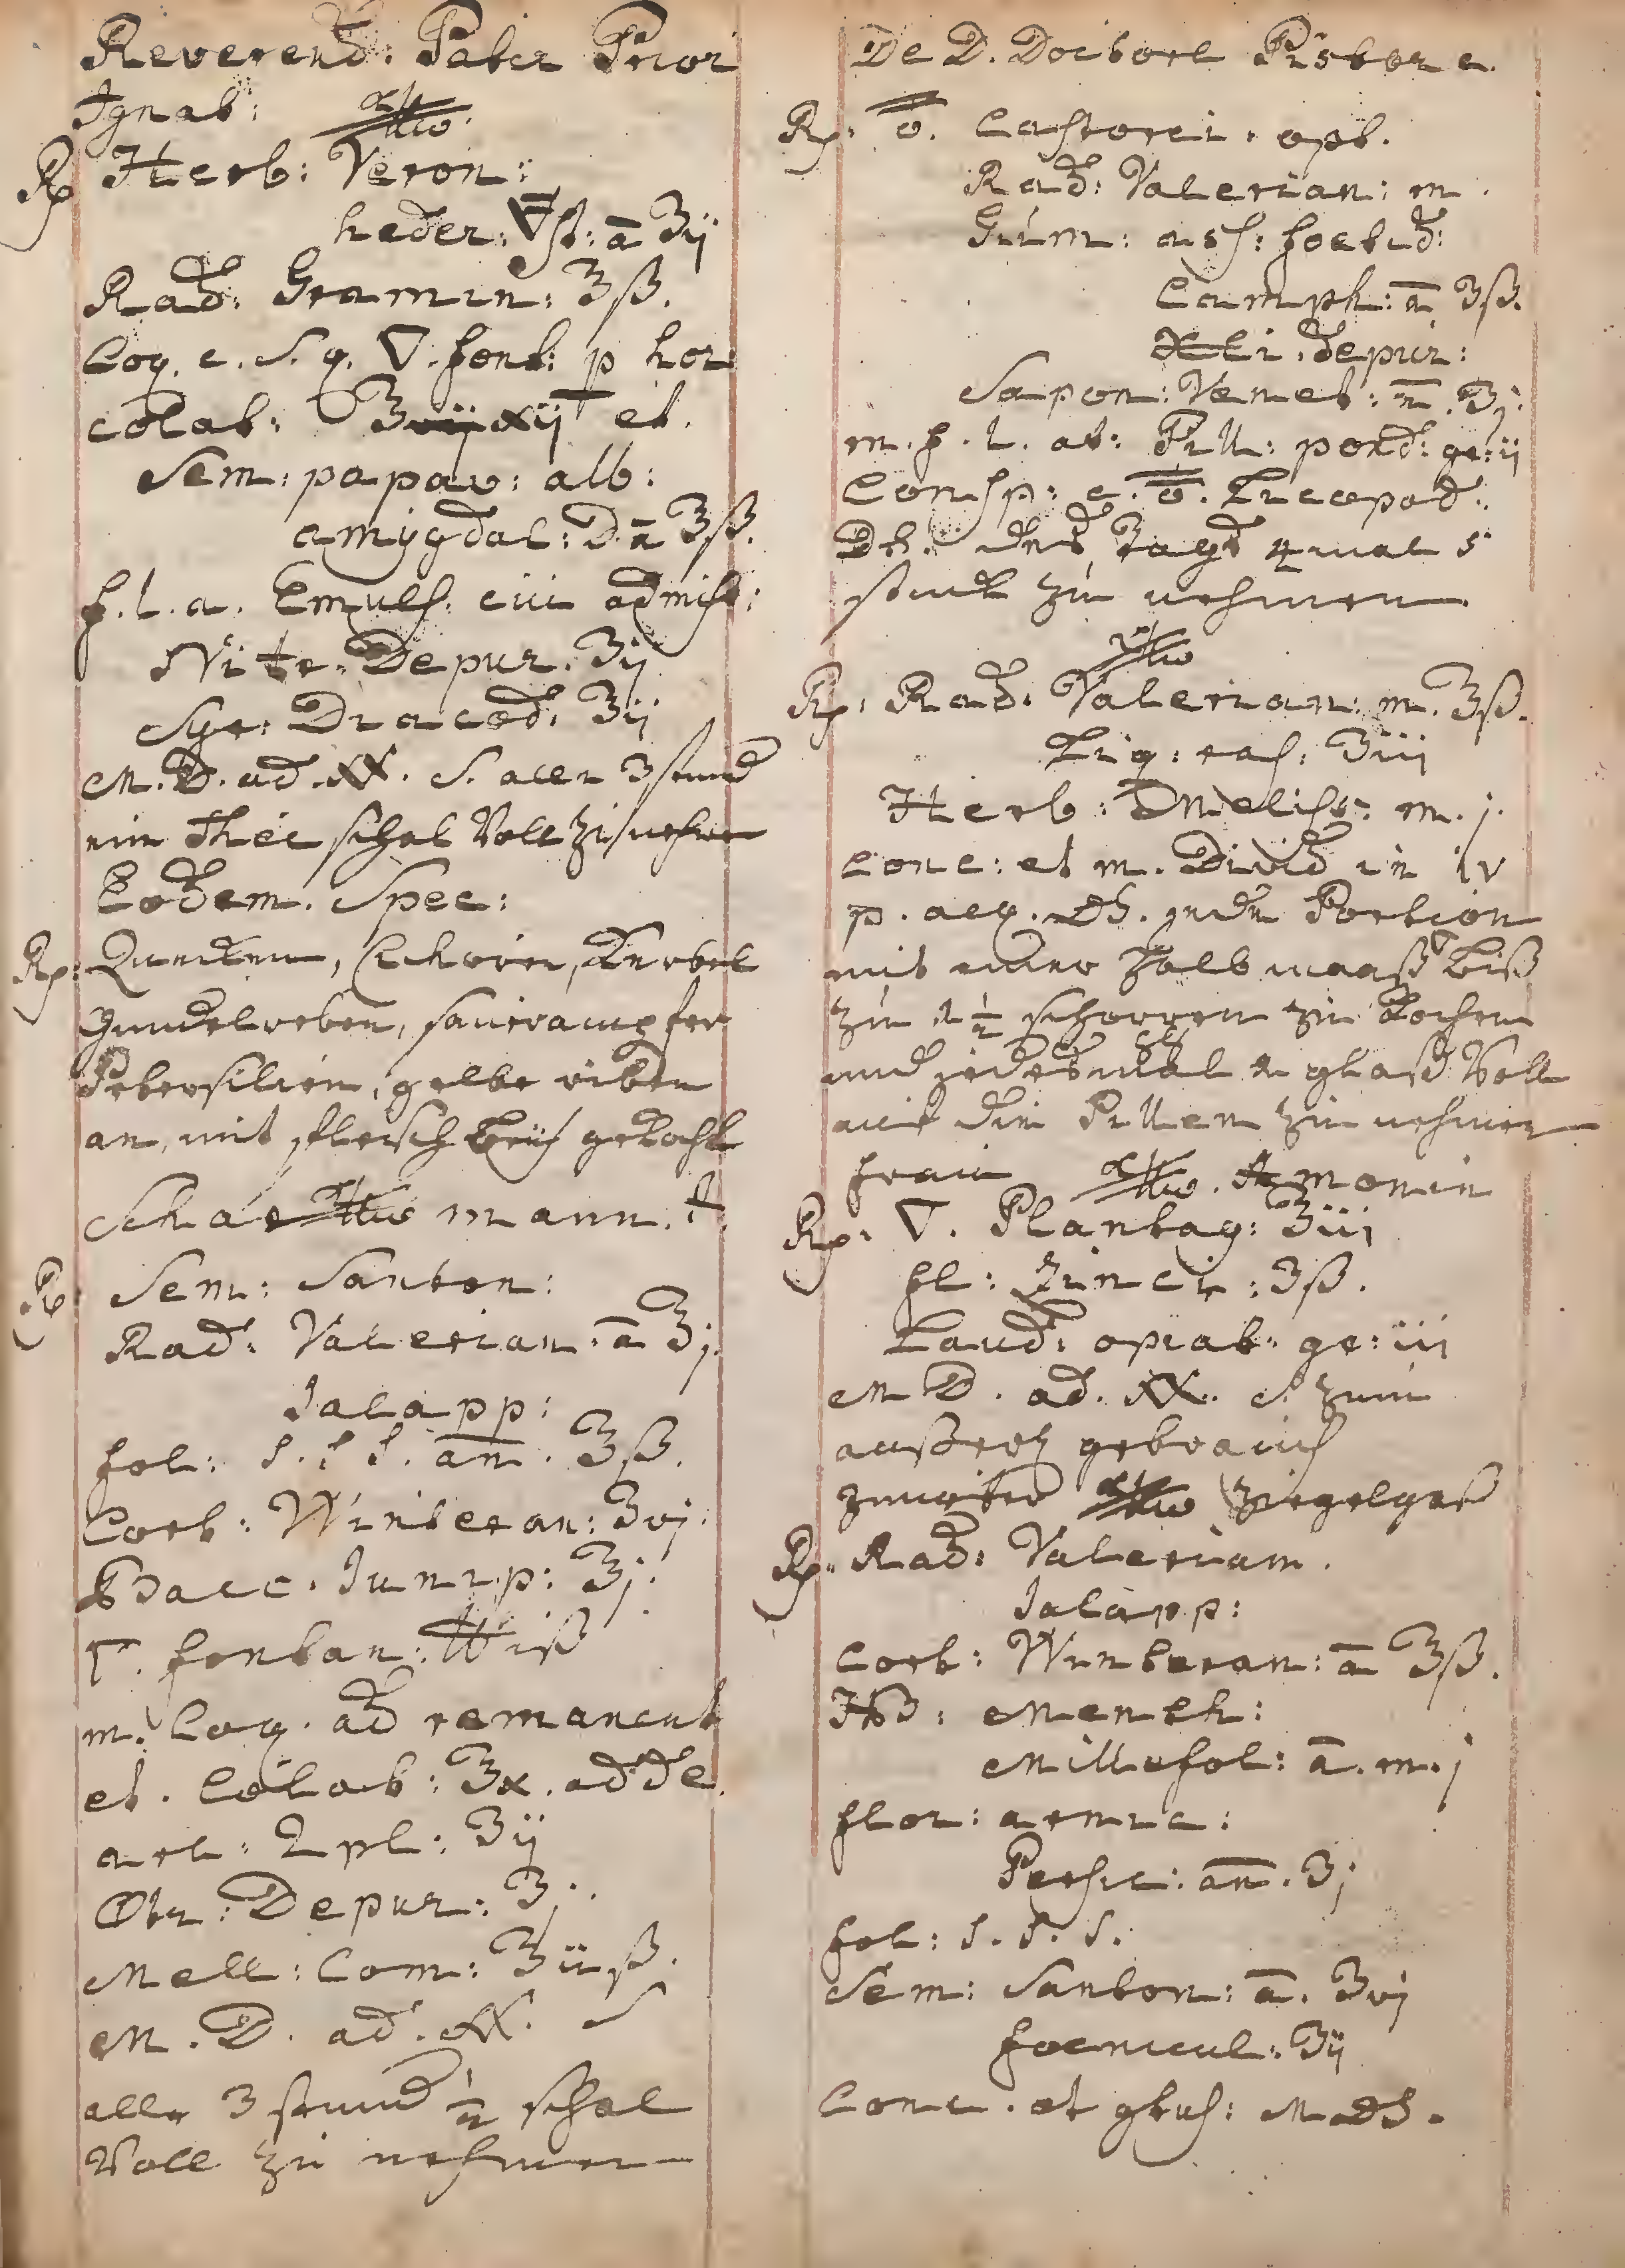 Reverend: Pater Prior
Ignat:
Rp Herb: Veron:
heder: 🜃st: ā ʒij
Rad: Gramin: ℥ß.
Coq. c. s. q. 🜄. font: p hor:
colat: ℥xij et.
Sem: papav: alb:
amÿgdal: D. ā ℥ß.
f. l. a. Emuls. cui admisc:
Nitr. Depur. ʒij
Syr: Diacod: ʒij
M. D. ad. S. aller 3 stund
ein Thee schal Voll zu nehmen
Eodem. Spec:
Rp: Quecken, Cichorien, Kerbel
Gundelreben, sauerampfer
Petersilien, gelbe ruben
an, mit fleisch brüh gekocht
Schar mann. t.
Rp: Sem: Santon:
Rad: Valerian. ā ʒj.
Jalapp:
fol: S. S. S. an. ʒß.
Cort: Winteran: ʒvj.
Bacc. Junip: ʒj.
🜄. fontan: ℔iß
m. Coq. ad remanent
et. Colat: ℥x. adde.
arc: Dpl: ʒij
Depur: ʒj.
Mell: Com: ℥iiß.
M. D. ad. S
alle 3 stund ½ schal
Voll zu nehmen
De D. Doctore
Rp: Castorei. opt.
Rad: Valerian: m.
Gum: ass: foetid:
Camph: ā ʒß.
depur:
Sapon: Venet: ā. ʒj.
m. f. l. at: Pill: pond: gr: ij
Consp: c. Licopod:
DS. des Tags 4 mal 5
stuck zu nehmen
Rp: Rad: Valerian: m. ℥ß.
Liq: ras: ʒiij
Herb: Meliss: m. j.
conc: et m. Divid in iv
p. aeq. DS. jede Portion
mit einer halb maaß biß
zu 1½ schoppen zu kochen
und jedesmal 1 glaß Voll
auf die Pillen zu nehmen
frau Amonin
Rp: 🜄. Plantag: ℥iij
fl: Zinci: ʒß.
Laud: opiat: gr: iij
M D. ad. S. zum
außerl gebrauch
Ziegelgaß
Rp: Rad: Valerian.
Jalapp:
Cort: Winteran: ā ℥ß.
Hb: Menth:
Millefol: ā. m. j
flor: arnic:
Persic: an. ʒj
fol: S. S. S.
Sem: Santon: ā. ʒvj
foenicul: ʒij
Conc. et gtus: M. DS.